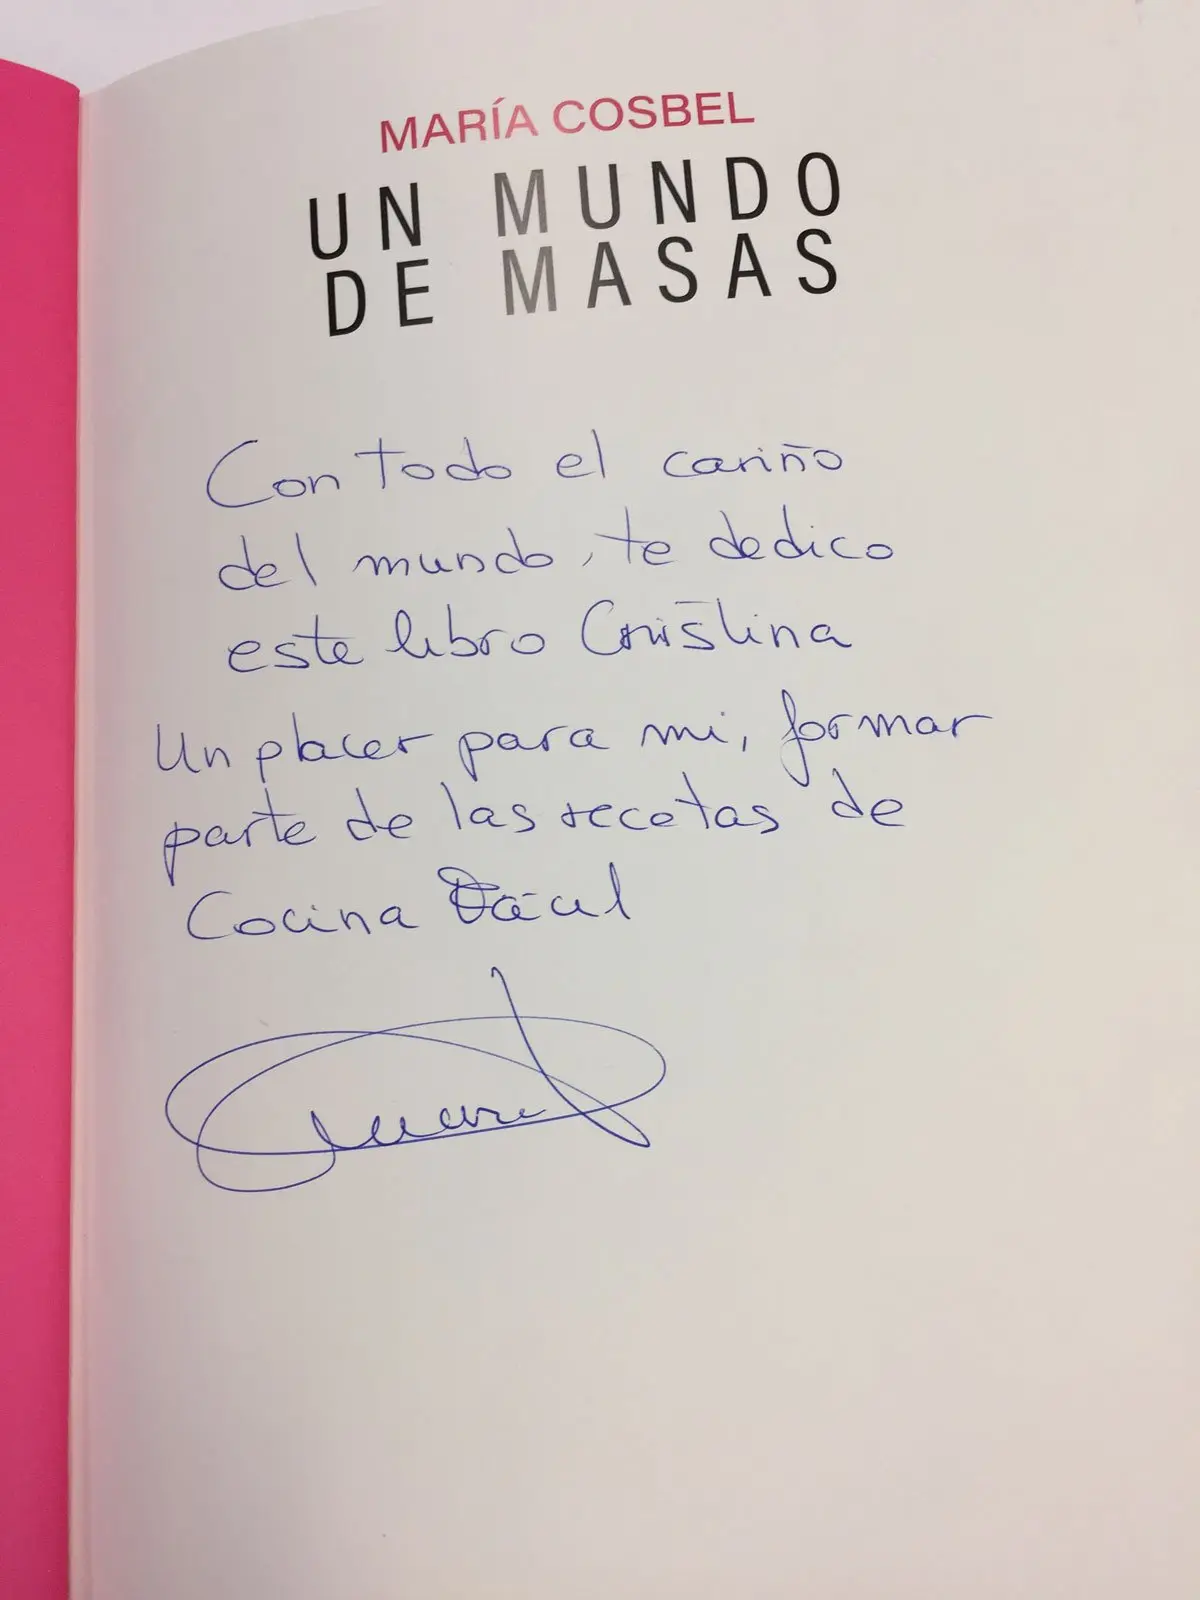 MARÍA COSBEL
UN MUNDO
DE MASAS
Con todo el cariño
del mundo, te dedico
este libro Cristina
Un placer para mi, formar
parte de las recetas de
Cocina